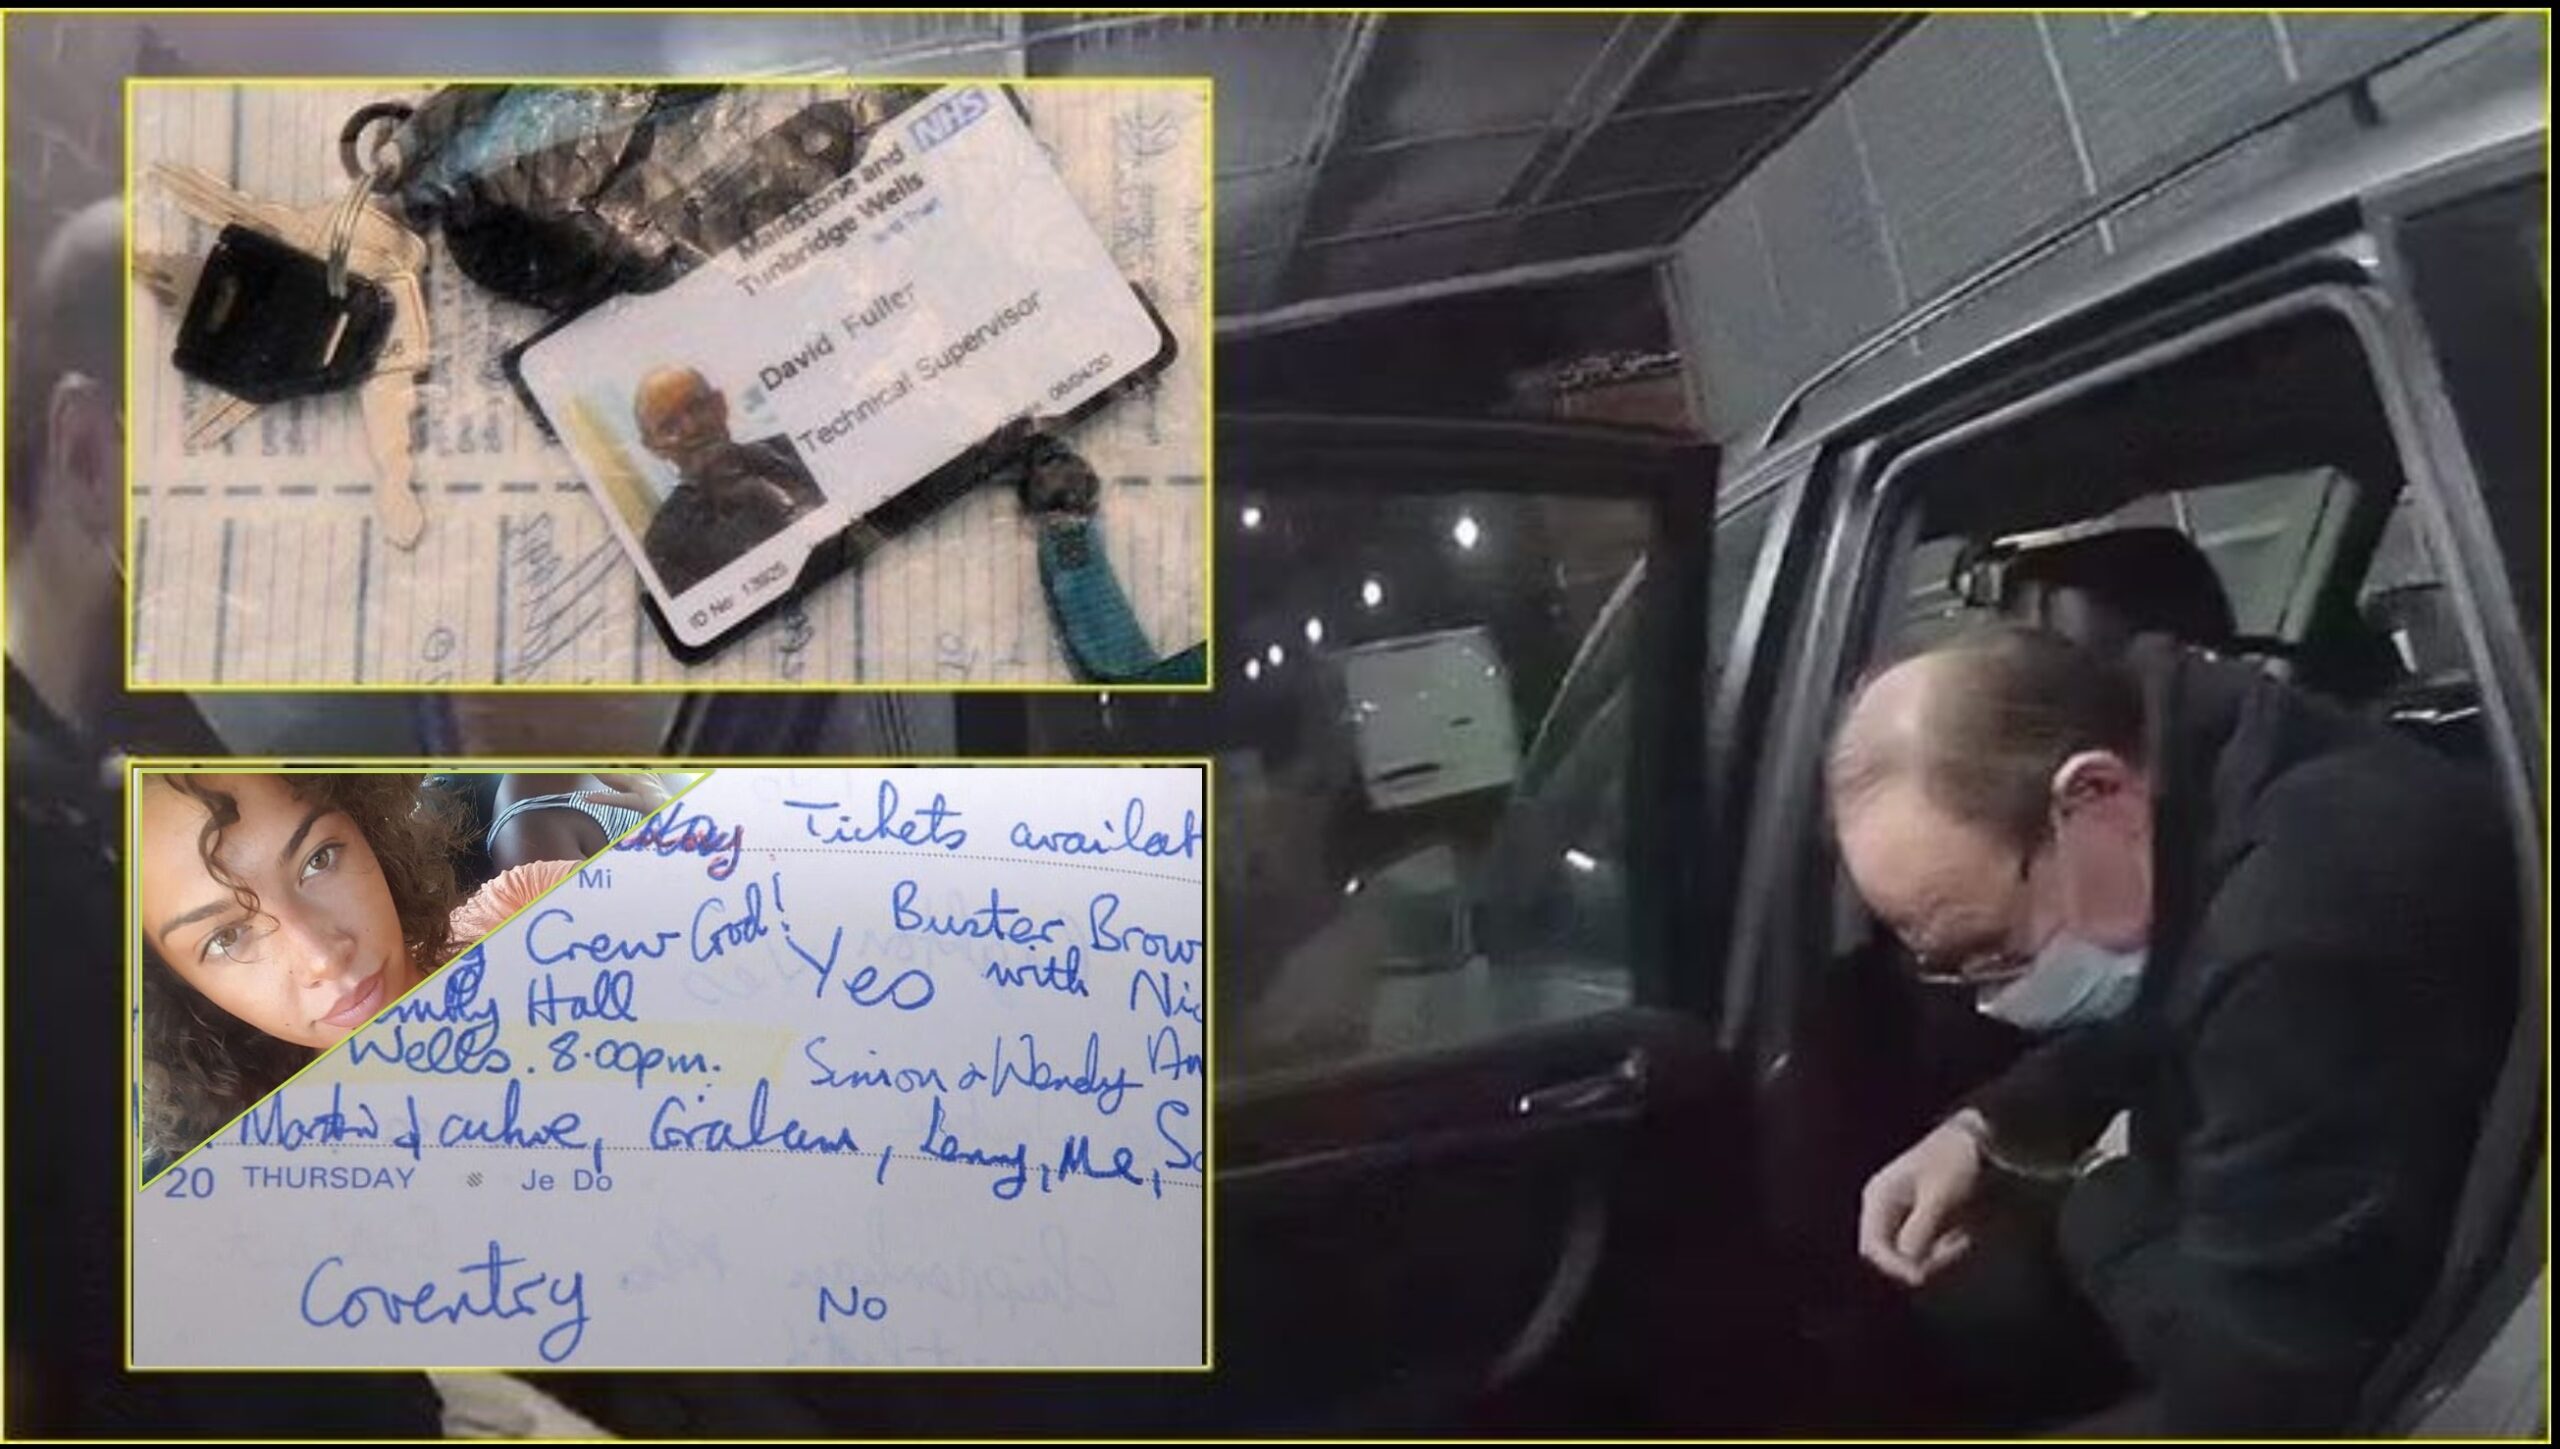 NHS
Maidstone and
Tunbridge Wells
David Fuller
Technical Supervisor
08/04/20
ID No: 13925
Tickets availab
Mi
Crew God! Yes Buster Brow
with Nic
Hall
Wells. 8.00pm. Simon & Wendy An
Martin & Graham, Lenny, Me, S
20 THURSDAY Je Do
Coventry No